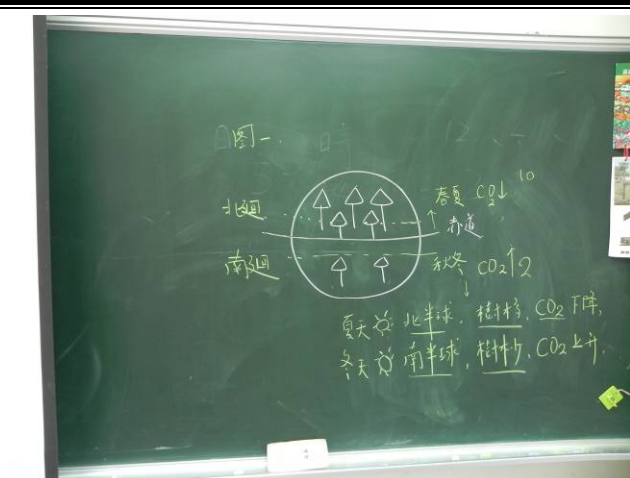 图一.
北迴
春夏 CO2↓ 10
赤道
南迴
秋冬 CO2↑2
↓
夏天 北半球, 樹木多, CO2下降,
冬天 南半球, 樹木少, CO2上升.